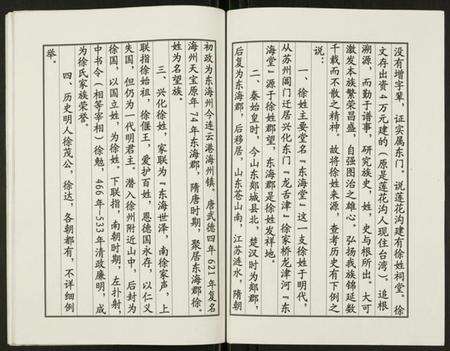 没有增字辈，证实属东门，说莲花沟建有徐姓祠堂。徐
文存出资4万元建的（原是莲花沟人现住台湾）追根
溯源，而勤于谱事，研究族史，姓，史与根所出。大可
激发本族繁荣昌盛，自强图治之雄心，弘扬我族锦延数
千载而不散之精神，故将徐姓来源，查考历史有下例之
说：
一、徐姓主要堂名『东海堂』这一支徐姓于明代，
从苏州阊门迁居兴化东门『龙舌津』徐家桥龙津河『东
海堂』源于徐姓郡望，东海郡是徐姓发祥地。
二、秦始皇时，今山东郯城县北，楚汉时为郯郡，
后复为东海郡，后移居，山东苍山南，江苏涟水，隋朝
初改为东海州今连云港海州镇，唐武德四年621年复名
海州天宝原年74年东海郡，隋唐时期，聚居东海郡徐
姓为名望族。
三、兴化徐姓，家联为『东海世泽，南徐家声，上
联指徐始祖，徐偃王，爱护百姓，恩德国永存，以仁义
失国，但仍为一代明君主。潜入徐州附近山中，后封为
徐国，以国立姓，为徐姓。下联指，南朝时期，左扑射，
中书令（相等宰相）徐勉，466年-533年清政廉明，成
为徐氏家族荣誉。
四、历史明人徐茂公，徐达，各朝都有，不详细例
举。